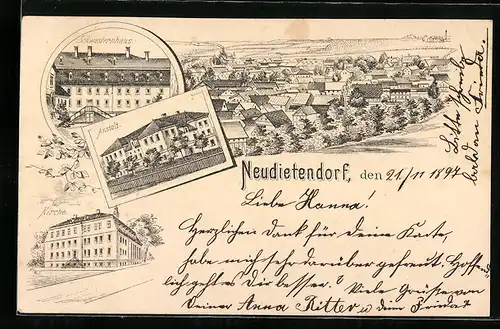 Schwesternhaus.
Anstalt.
Kirche.
Neudietendorf, den 21./11 1897
Liebe Hanna!
Herzlichen Dank für deine Karte,
habe mich sehr darüber gefreut. Hoffent
lich geht's Dir besser.? Viele Grüsse von
Deiner Anna Ritter u dem
Bitte schreib
bald an